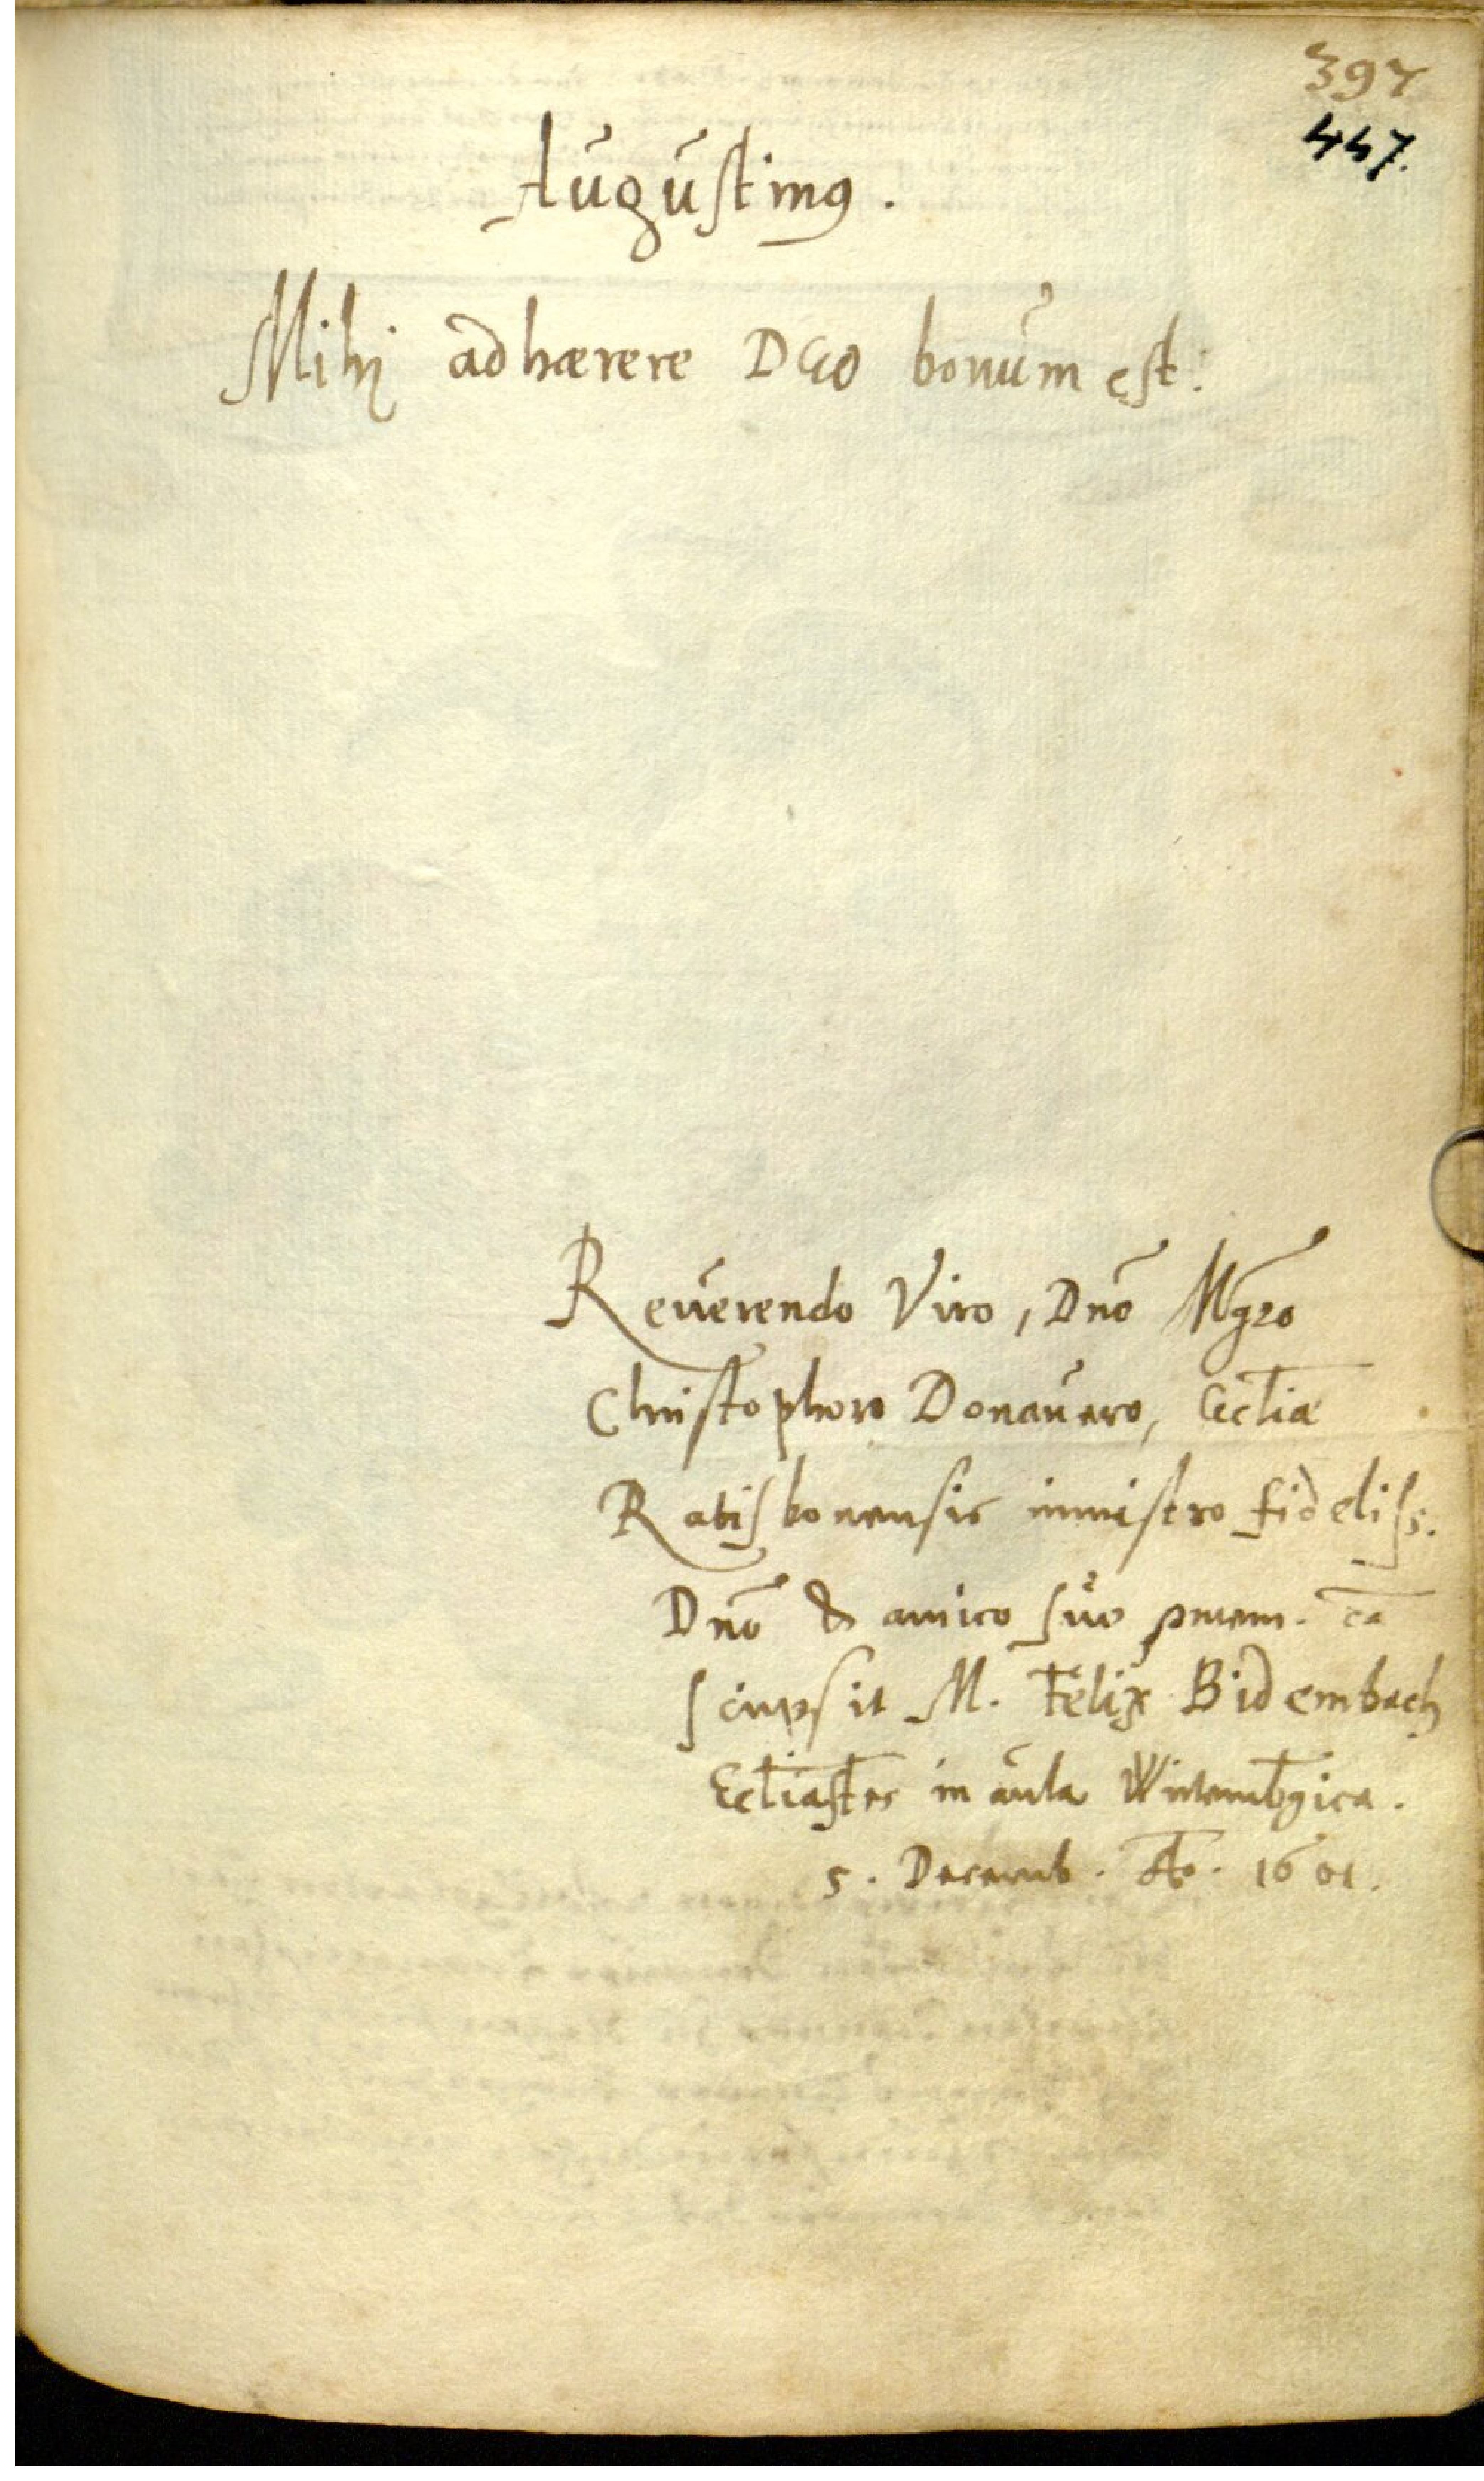 397
447.
Augustinꝰ.
Mihi adhærere DEO bonum est.
Reuerendo Viro, Dnō Mgr̄o
Christophoro Donauero, Eccl̄iæ
Ratisbonensis ministro fideliss.
Dnō & amico suo p mem. cā
scripsit M. Felix Bidembach
Eccl̄iastes in aula Wirtembḡica.
5. Decemb. Aō. 1601.